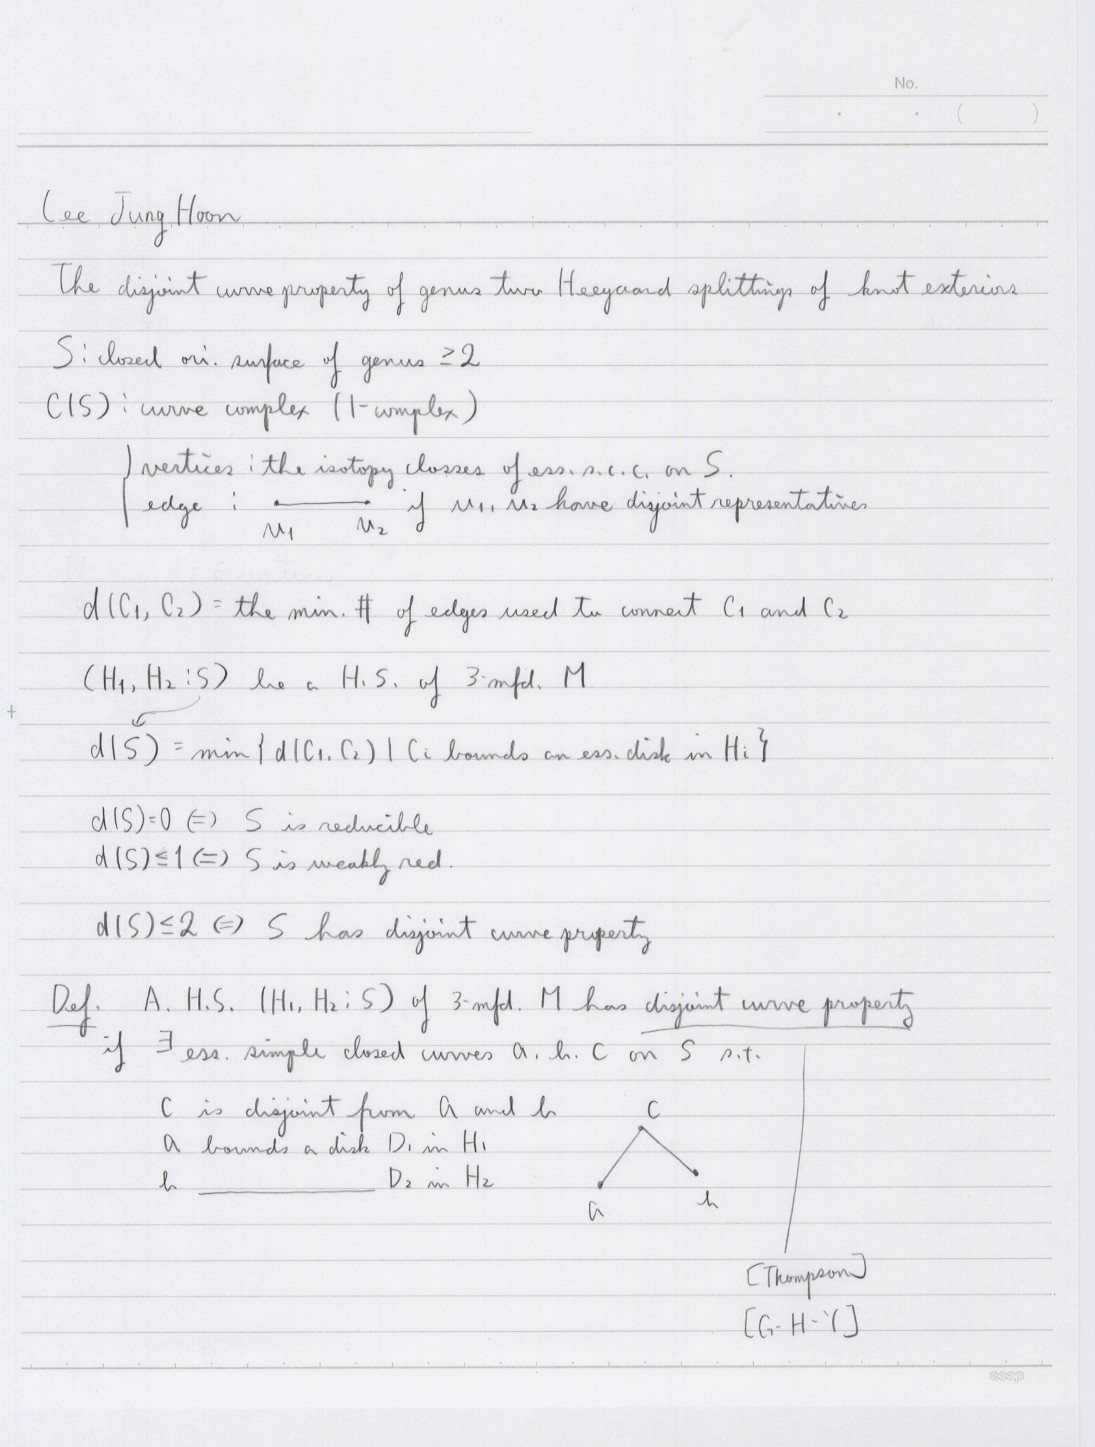 No.
( )
Lee Jung Hoon
The disjoint curve property of genus two Heegaard splittings of knot exteriors
S : closed ori. surface of genus ≥2
C(S) : curve complex (1-complex)
vertices : the isotopy classes of ess. s.c.c. on S.
edge : if v1, v2 have disjoint representatives
v1 v2
d(C1, C2) = the min. # of edges used to connect C1 and C2
(H1, H2 ; S) be a H.S. of 3-mfd. M
d(S) = min { d(C1, C2) | Ci bounds an ess. disk in Hi }
d(S)=0 ⇔ S is reducible
d(S)≤1 ⇔ S is weakly red.
d(S)≤2 ⇔ S has disjoint curve property
Def. A. H.S. (H1, H2 ; S) of 3-mfd. M has disjoint curve property
if ∃ ess. simple closed curves a. b. c on S s.t.
c is disjoint from a and b
a bounds a disk D1 in H1
b ________ D2 in H2
c
a b
[Thompson]
[G-H-Y]